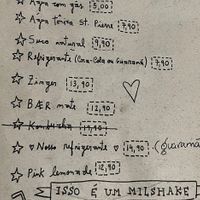 ☆ Água com gás 5,00
☆ Água tônica St. Pierre 7,90
☆ Suco natural 9,90
☆ Refrigerante (Coca-Cola ou Guaraná) 7,90
☆ Zinger 13,90
☆ BÆR mate 12,90
☆ Kombucha 19,90
☆ ♡ Nosso refrigerante ♡ 14,90 (guaraná
☆ Pink lemonade 12,90
ISSO É UM MILSHAKE